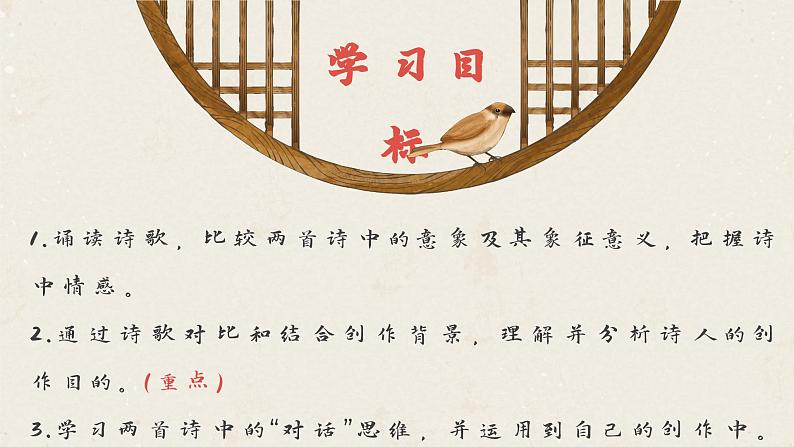 学习目
标
1.诵读诗歌，比较两首诗中的意象及其象征意义，把握诗
中情感。
2.通过诗歌对比和结合创作背景，理解并分析诗人的创
作目的。(重点)
3.学习两首诗中的“对话”思维，并运用到自己的创作中。